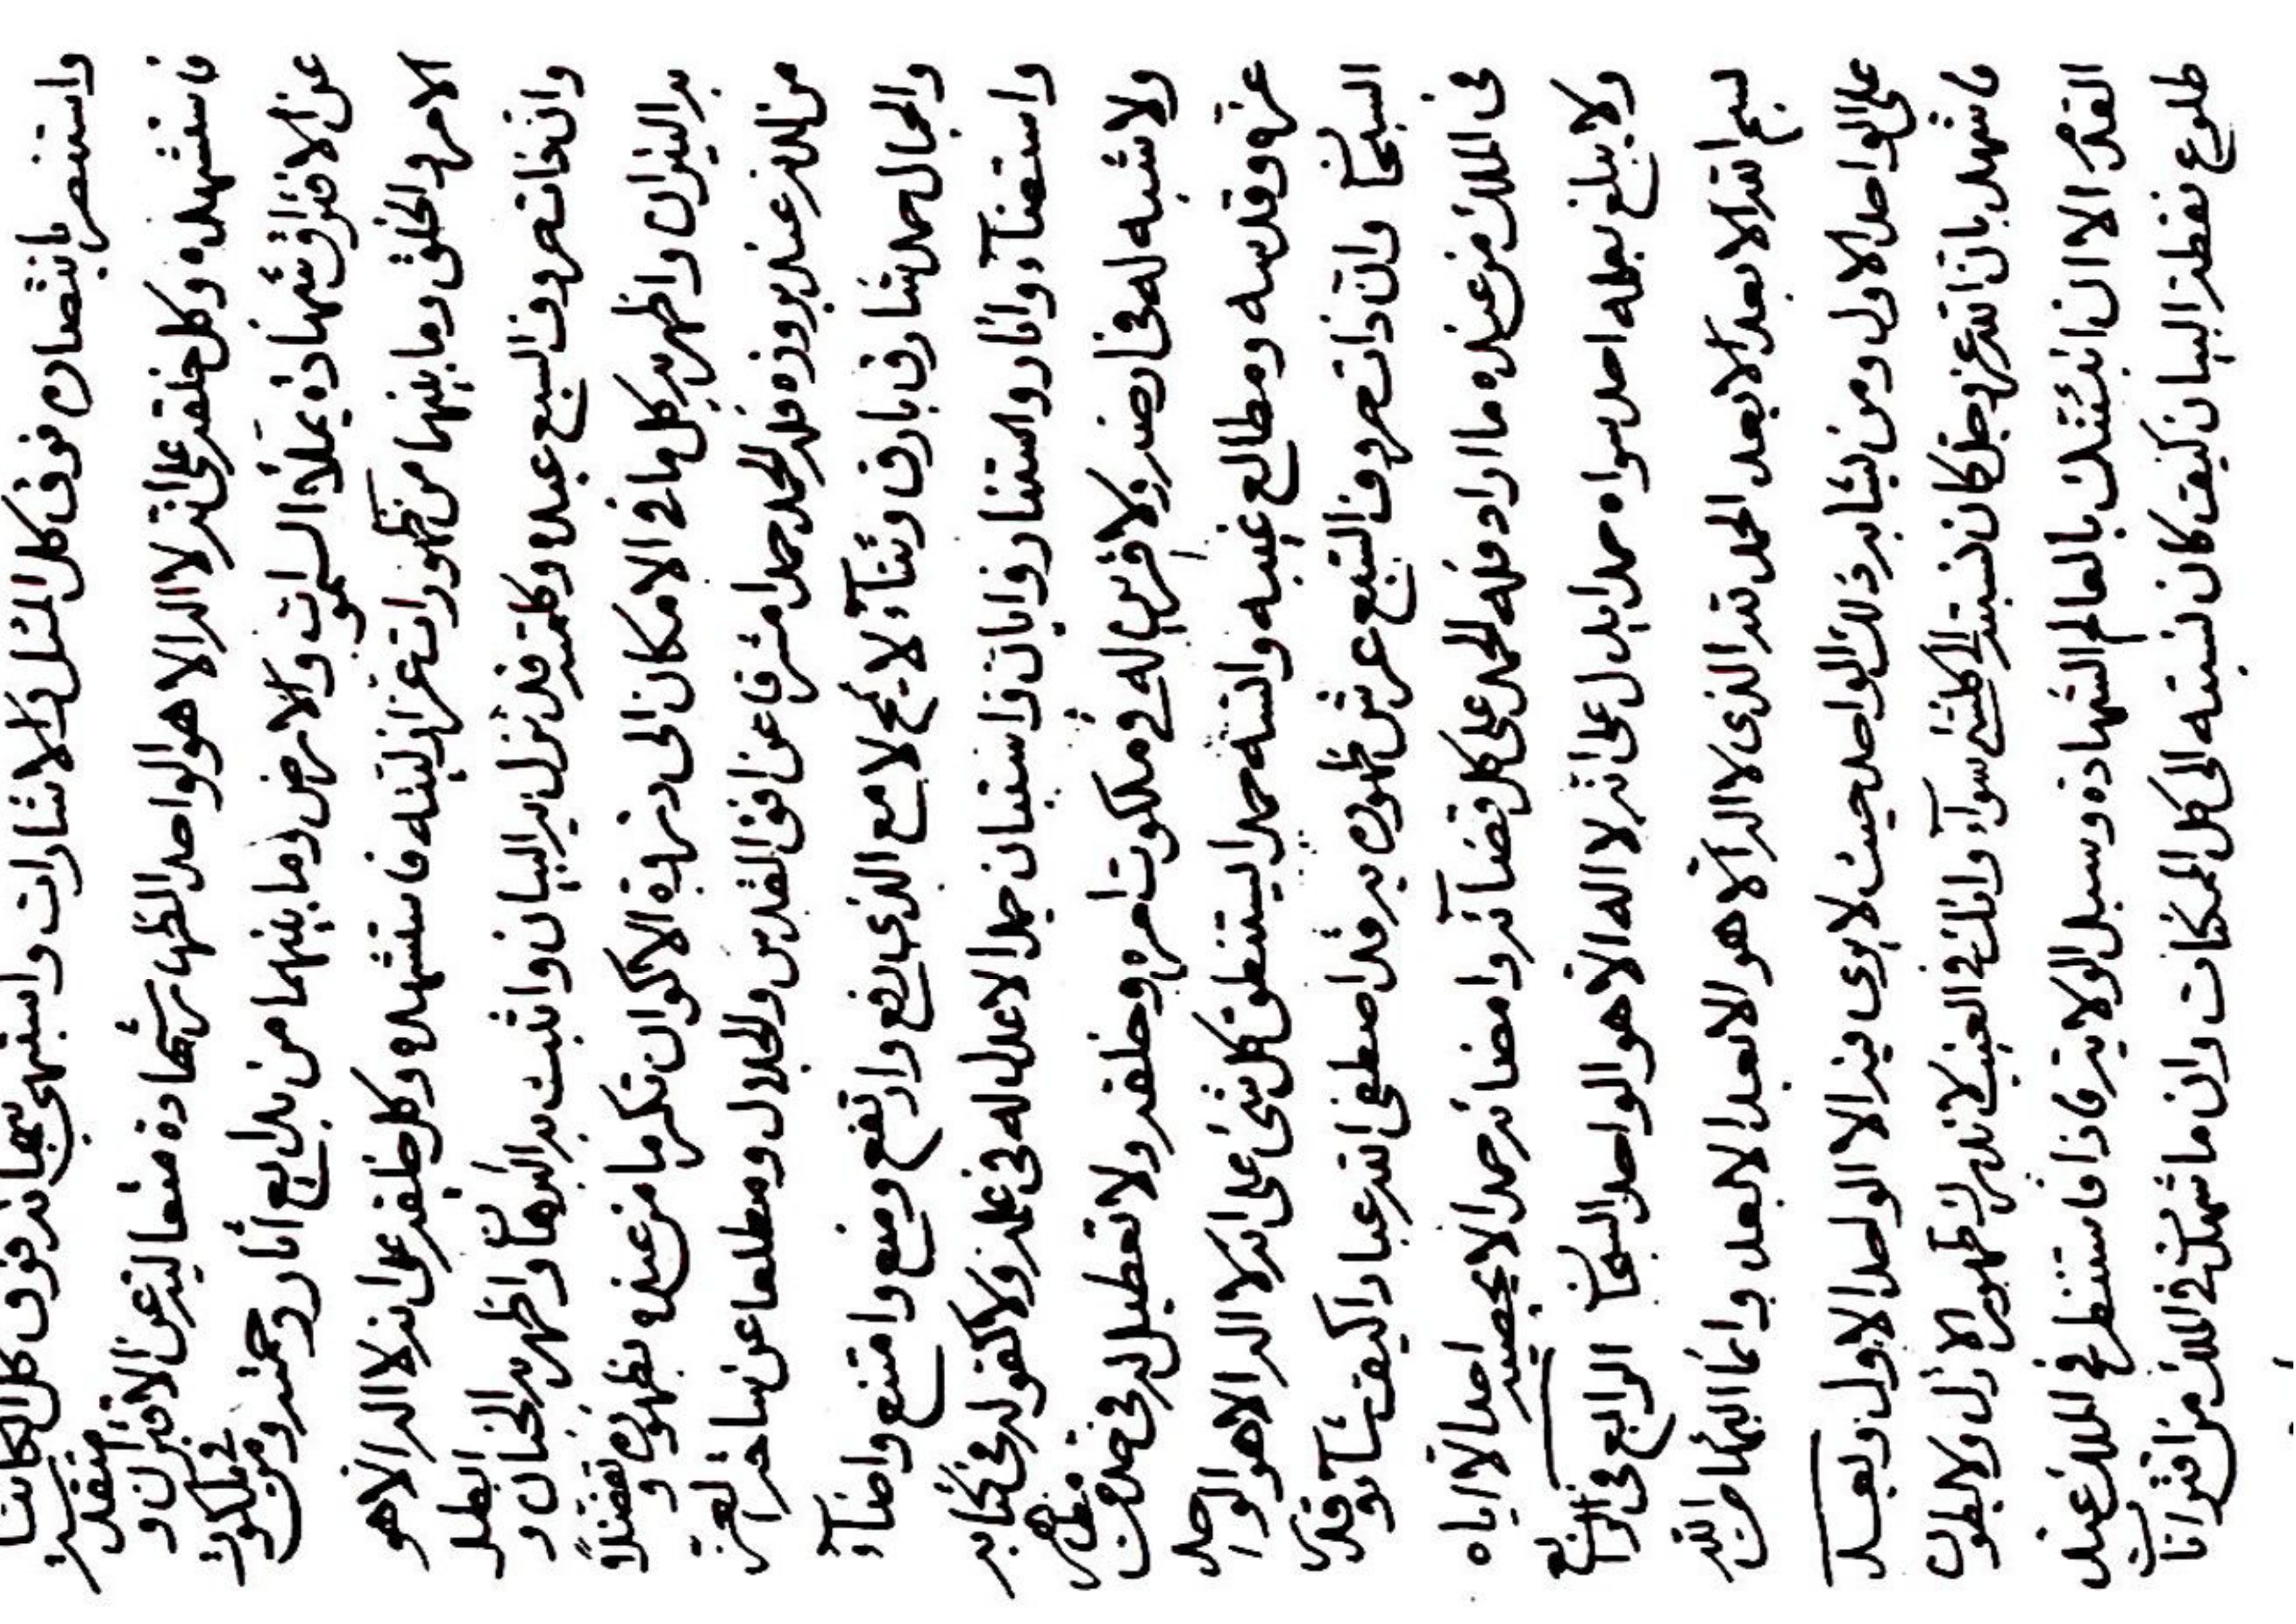 واستنصر بانتصاره فوق كل المثل والاشارات واستبهى ببهائه فوق كل الكائنات
فاستشهده وكل خلقه على انه لا اله الا هو الواحد الظهار شهادة متعاليه عن الاقتران و متقدسة
عن الافتراق شهادة يملأ السموات والارض وما بينهما من بدايع اثار رحمته ومن في ملكوت
الامر والخلق وما بينهما من ظهورات عز ازليته فاستشهده وكل خلقه على انه لا اله الا هو
وان ذات حروف السبع عبده وكلمته قد نزل به البيان واثبت به البرهان واظهر به الجنان و ابطل
به النيران واظهر به كل ما في الامكان الى ذروة الاكوان تكرما من عنده بظهوره و تفضلا
من لدن عند بروزه فله الحمد حمدا مشرقا عن افق القدس والجلال ومطلعا عن ساحة العز
والجمال حمد شارق بارق وثناء لايح لامع الذي رفع وارتفع ومنع وامتنع واضاء
واستضاء وانار واستنار وابان واستبان حمدا لا عدل له في علمه ولا كفو له في كتابه
ولا شبه له في ارضه ولا قرين له في ملكوت امره وخلقه ولا تعطيل له في مظهر
عزه وقدسه ومطالع غيبه وانسه حمدا يستنطق كل شئ على انه لا اله الا هو الواحد
السبحان وان ذات حروف السبع عرش ظهوره به قد اصطفى الله عبادا كيف شاء وقدر
في الملك من عنده ما اراد فله الحمد على كل قضائه وامضائه حمدا لا يحصيه احدا الا اياه
ولا يبلغ بعلمه احد سواه حمدا يدل على انه لا اله الا هو الواحد السبحان الرابع في الرابع
بسم الله الابعد الابعد الحمد لله الذي لا اله الا هو الابعد الابعد وانما البهاء من الله
على الواحد الاول ومن يشابه ذلك الواحد حيث لا يرى فيه الا الواحد الاول وبعد
فاشهد بان الله عز وجل كان نسبته الى كلشئ سواء وانك في الغيب لا تدرك ظهور الازل ولا بطون
القدم الا ان انبئتك بالعالم الشهادة وسبل الولاية فاذا فاستنظر في الملك عند
طلوع نقطة البيان كيف كان نسبته الى كل الممكنات وان ما شهدت في الملك من اقترانات